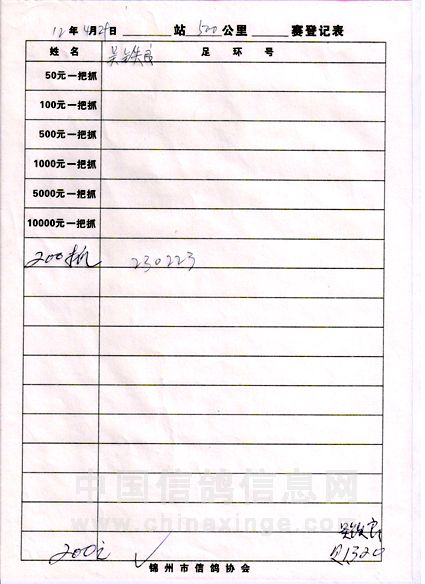 12年4月25日 站 500公里 赛登记表
姓名 吴铁良 足环号
50元一把抓
100元一把抓
500元一把抓
1000元一把抓
5000元一把抓
10000元一把抓
200抓 230223
中国信鸽信息网
www.chinaxinge.com
吴铁良
200 √
锦州市信鸽协会